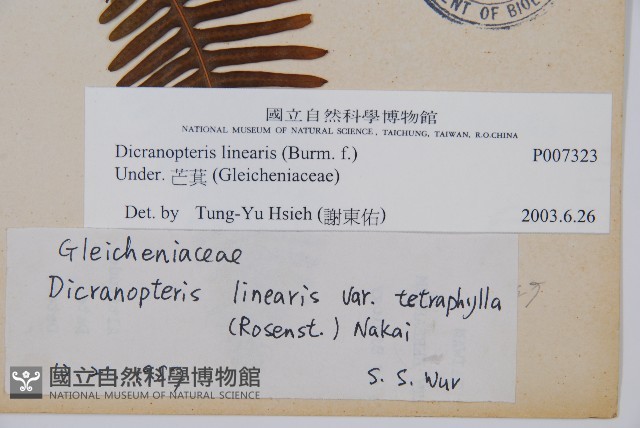 ENT OF BIOL
國立自然科學博物館
NATIONAL MUSEUM OF NATURAL SCIENCE, TAICHUNG, TAIWAN, R.O.CHINA
Dicranopteris linearis (Burm. f.) P007323
Under. 芒萁 (Gleicheniaceae)
Det. by Tung-Yu Hsieh (謝東佑) 2003.6.26
Gleicheniaceae
Dicranopteris linearis var. tetraphylla
(Rosenst.) Nakai
S. S. Wur
國立自然科學博物館
NATIONAL MUSEUM OF NATURAL SCIENCE